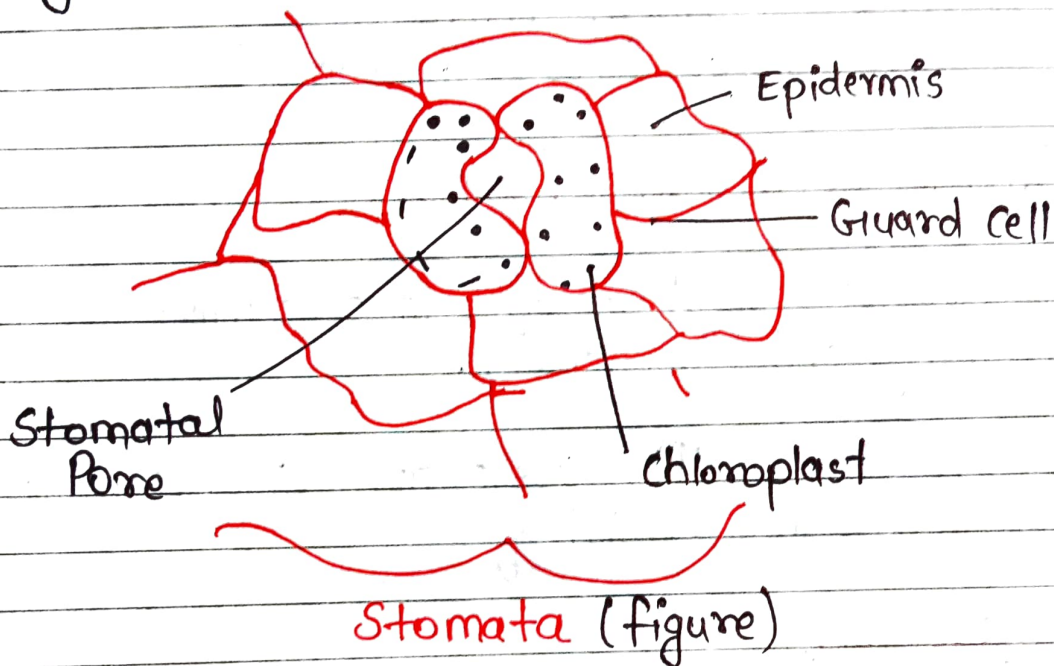 Epidermis
Guard Cell
Stomatal
Pore
Chloroplast
Stomata (figure)